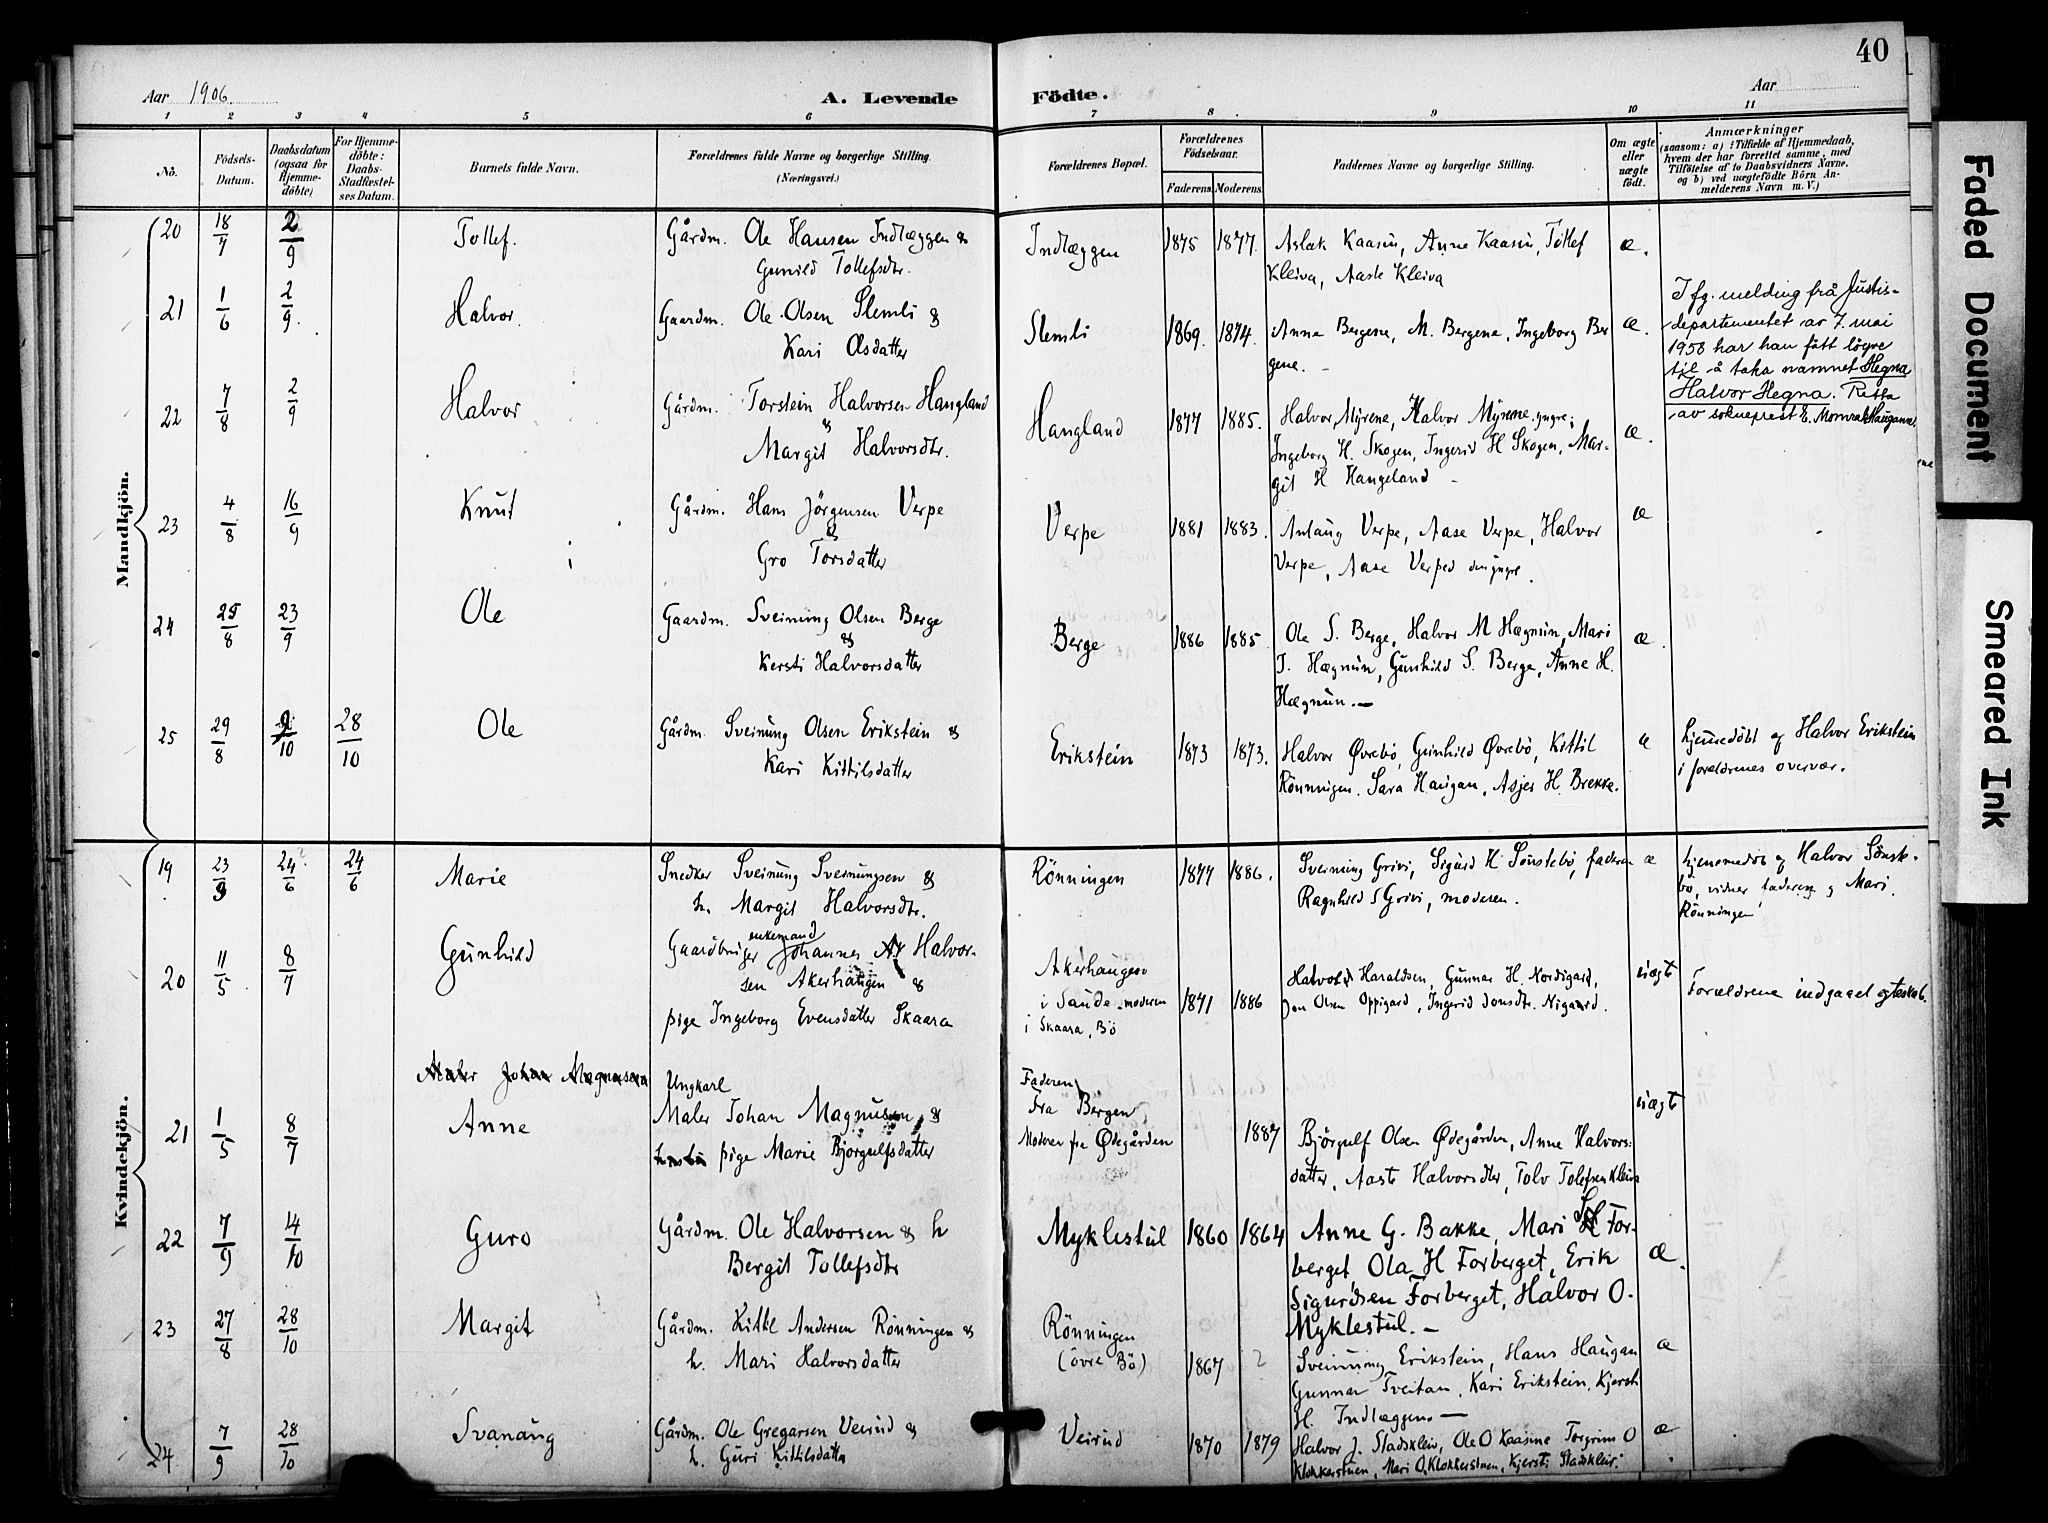 40
Aar 1906. A. Levende Födte. Aar
1 2 3 4 5 6 7 8 9 10 11
No. Födsels-Datum. Daabsdatum (ogsaa for Hjemmedöbte) For Hjemmedöbte: Daabs-Stadfæstelses Datum. Barnets fulde Navn. Forældrenes fulde Navne og borgerlige Stilling. (Næringsvei.) Forældrenes Bopæl. Forældrenes Födselsaar. Faderens. Moderens. Faddernes Navne og borgerlige Stilling. Om ægte eller uægte födt. Anmærkninger (saasom: a) i Tilfælde af Hjemmedaab, hvem der har forrettet samme, med Tilföielse af to Daabsvidners Navne. og b) ved uægtefödte Börn Anmelderens Navn m. V.)
Mandkjön.
20 18/7 2/9 Tollef. Gårdm. Ole Hansen Indlæggen & Indlæggen 1875 1877. Aslak Kaasin, Anne Kaasin, Tollef æ.
Gunild Tollefsdtr. Kleiva, Aaste Kleiva
21 1/6 2/9. Halvor. Gaardm. Ole Olsen Slemli & Slemli 1869. 1874. Anne Bergene, M. Bergene, Ingeborg Ber æ.
Kari Olsdatter gene. -
I fg. melding frå Justis-
departementet av 7. mai
1958 har han fått løyve
til å taka namnet Hegna
Halvor Hegna. Retta
av sokneprest E.
22 7/8 2/9 Halvor Gårdm. Torstein Halvorsen Haugland Haugland 1877 1885. Halvor Myrene, Halvor Myrene yngre; æ.
& Margit Halvorsdtr. Ingeborg H. Skogen, Ingerid H Skogen, Mar-
git H Haugeland -
23 4/8 16/9 Knut Gårdm. Hans Jörgensen Verpe Verpe 1881 1883. Anlaug Verpe, Aase Verpe, Halvor æ
& Gro Torsdatter Verpe, Aase Verpe d. yngre.
24 25/8 23/9 Ole Gaardm. Sveinung Olsen Berge Berge 1886 1885. Ole S. Berge, Halvor M Hægnin, Mari æ.
& Kersti Halvorsdatter J. Hægnin, Gunhild S. Berge, Anne H.
Hægnin. -
25 29/8 2/10 28/10 Ole Gårdm. Sveinung Olsen Erikstein & Erikstein 1873 1873. Halvor Øvrebö, Gunhild Øvrebö, Kittil æ hjemmedöbt af Halvor Erikstein
Kari Kittilsdatter Rönningen. Sara Haugan, Asjer H. Brekke. i foreldrenes overvær.
Kvindekjön.
19 23/3 24/6 24/6 Marie Snedker Sveinung Sveinungsen & Rönningen 1877 1886. Sveinung Grivi, Sigurd H Sönstebö, faderen æ hjemmedöb af Halvor Sönste-
h. Margit Halvorsdtr. Ragnhild S Grivi, moderen. bö, vidner faderen og Mari
Rönningen
20 11/5 8/7 Gunhild Gaardbruger enkemand Johannes Halvor- Akerhaugen 1871 1886 Halvor Haraldsen, Gunnar H. Nordigard, uægt Forældrene indgaaet ægteskab.
sen Akerhaugen & i Saude, moderen Jon Olsen Oppigard, Ingerid Jonsdtr. Nigaard.
pige Ingeborg Evensdatter Skaara i Skaara, Bö
Maler Johan Magnussen Ungkarl Faderen
21 1/5 8/7 Anne Maler Johan Magnusen & fra Bergen 1887 Björgulf Olsen Ødegården, Anne Halvors- uægt
pige Marie Björgulfsdatter Moderen fra Ødegården datter, Aaste Halvorsdter, Tolv Tolefsen Kleiva
22 7/9 14/10 Guro Gårdm. Ole Halvorsen & h Myklestul 1860 1864 Anne G. Bakke, Mari For- æ.
Bergit Tollefsdtr berget, Ola H Forberget, Erik
Sigurdsen Forberget, Halvor O.
Myklestul. -
23 27/8 28/10 Margit Gårdm. Kittil Andersen Rönningen & Rönningen 1867 ? Sveinung Erikstein, Hans Haugan æ
h. Mari Halvorsdatter (övre Bö) Gunnar Tveitan, Kari Erikstein, Kjersti
H. Indlæggen -
24 7/9 28/10 Svanaug Gårdm. Ole Gregarsen Veirud & Veirud 1870 1879 Halvor J. Stadskleiv, Ole O Kaasine Torgrim O æ.
h. Guri Kittilsdatter Klokkerstuen, Mari O. Klokkerstuen, Kjersti Stadskleiv.
Faded Document
Smeared Ink